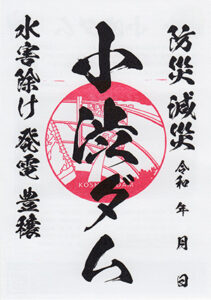 防災 減災
令和 年 月 日
小渋ダム
水害除け 発電 豊穣